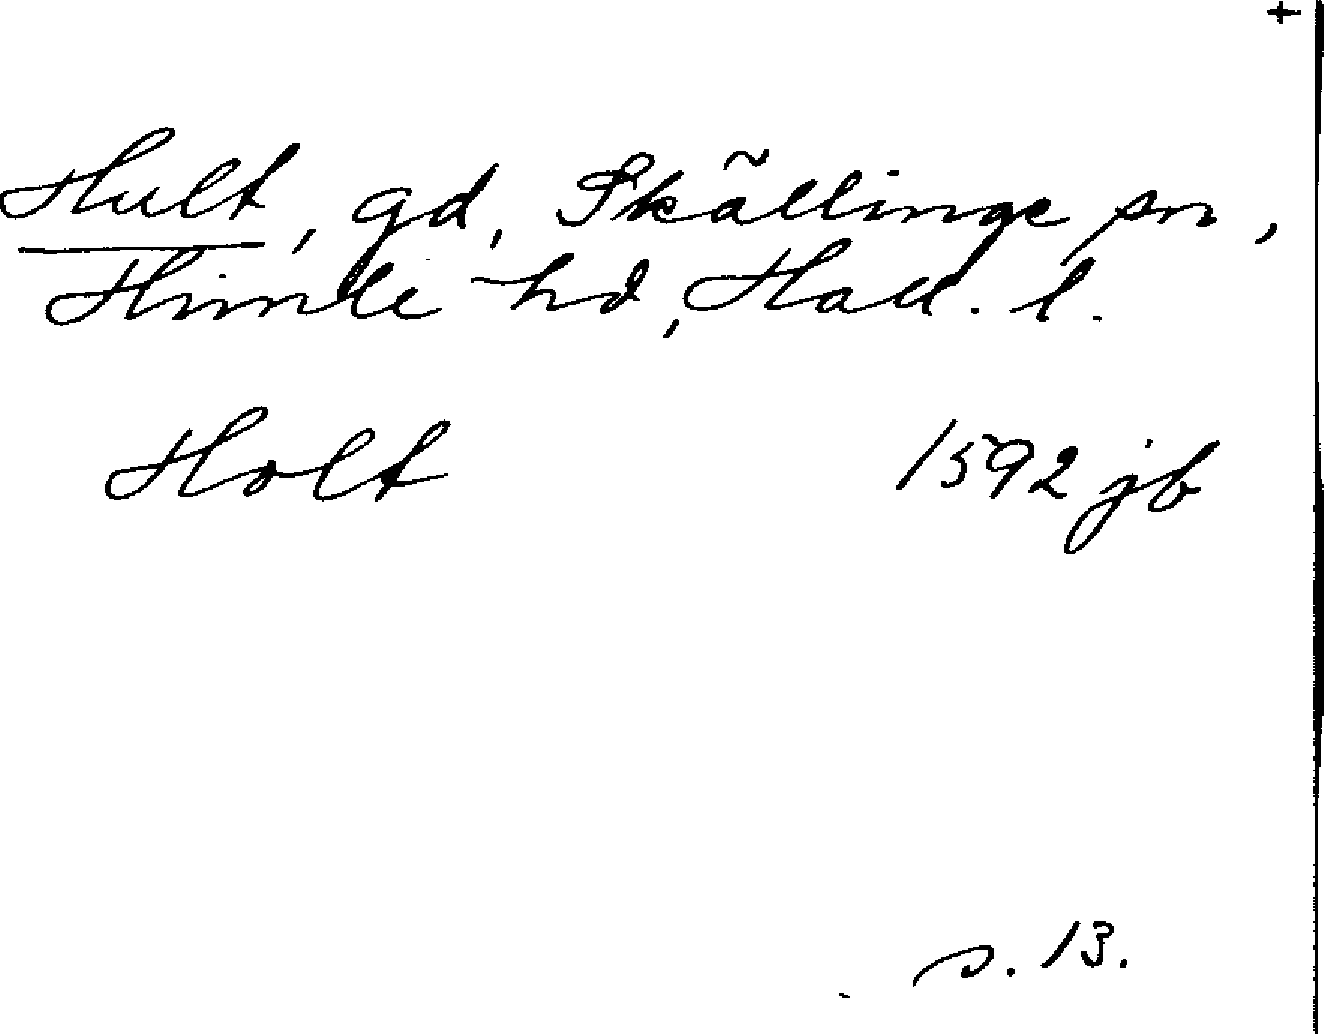 +
Hult, gd, Skällinge sn,
Himle hd, Hall. l.
Holt 1592 jb
s. 13.